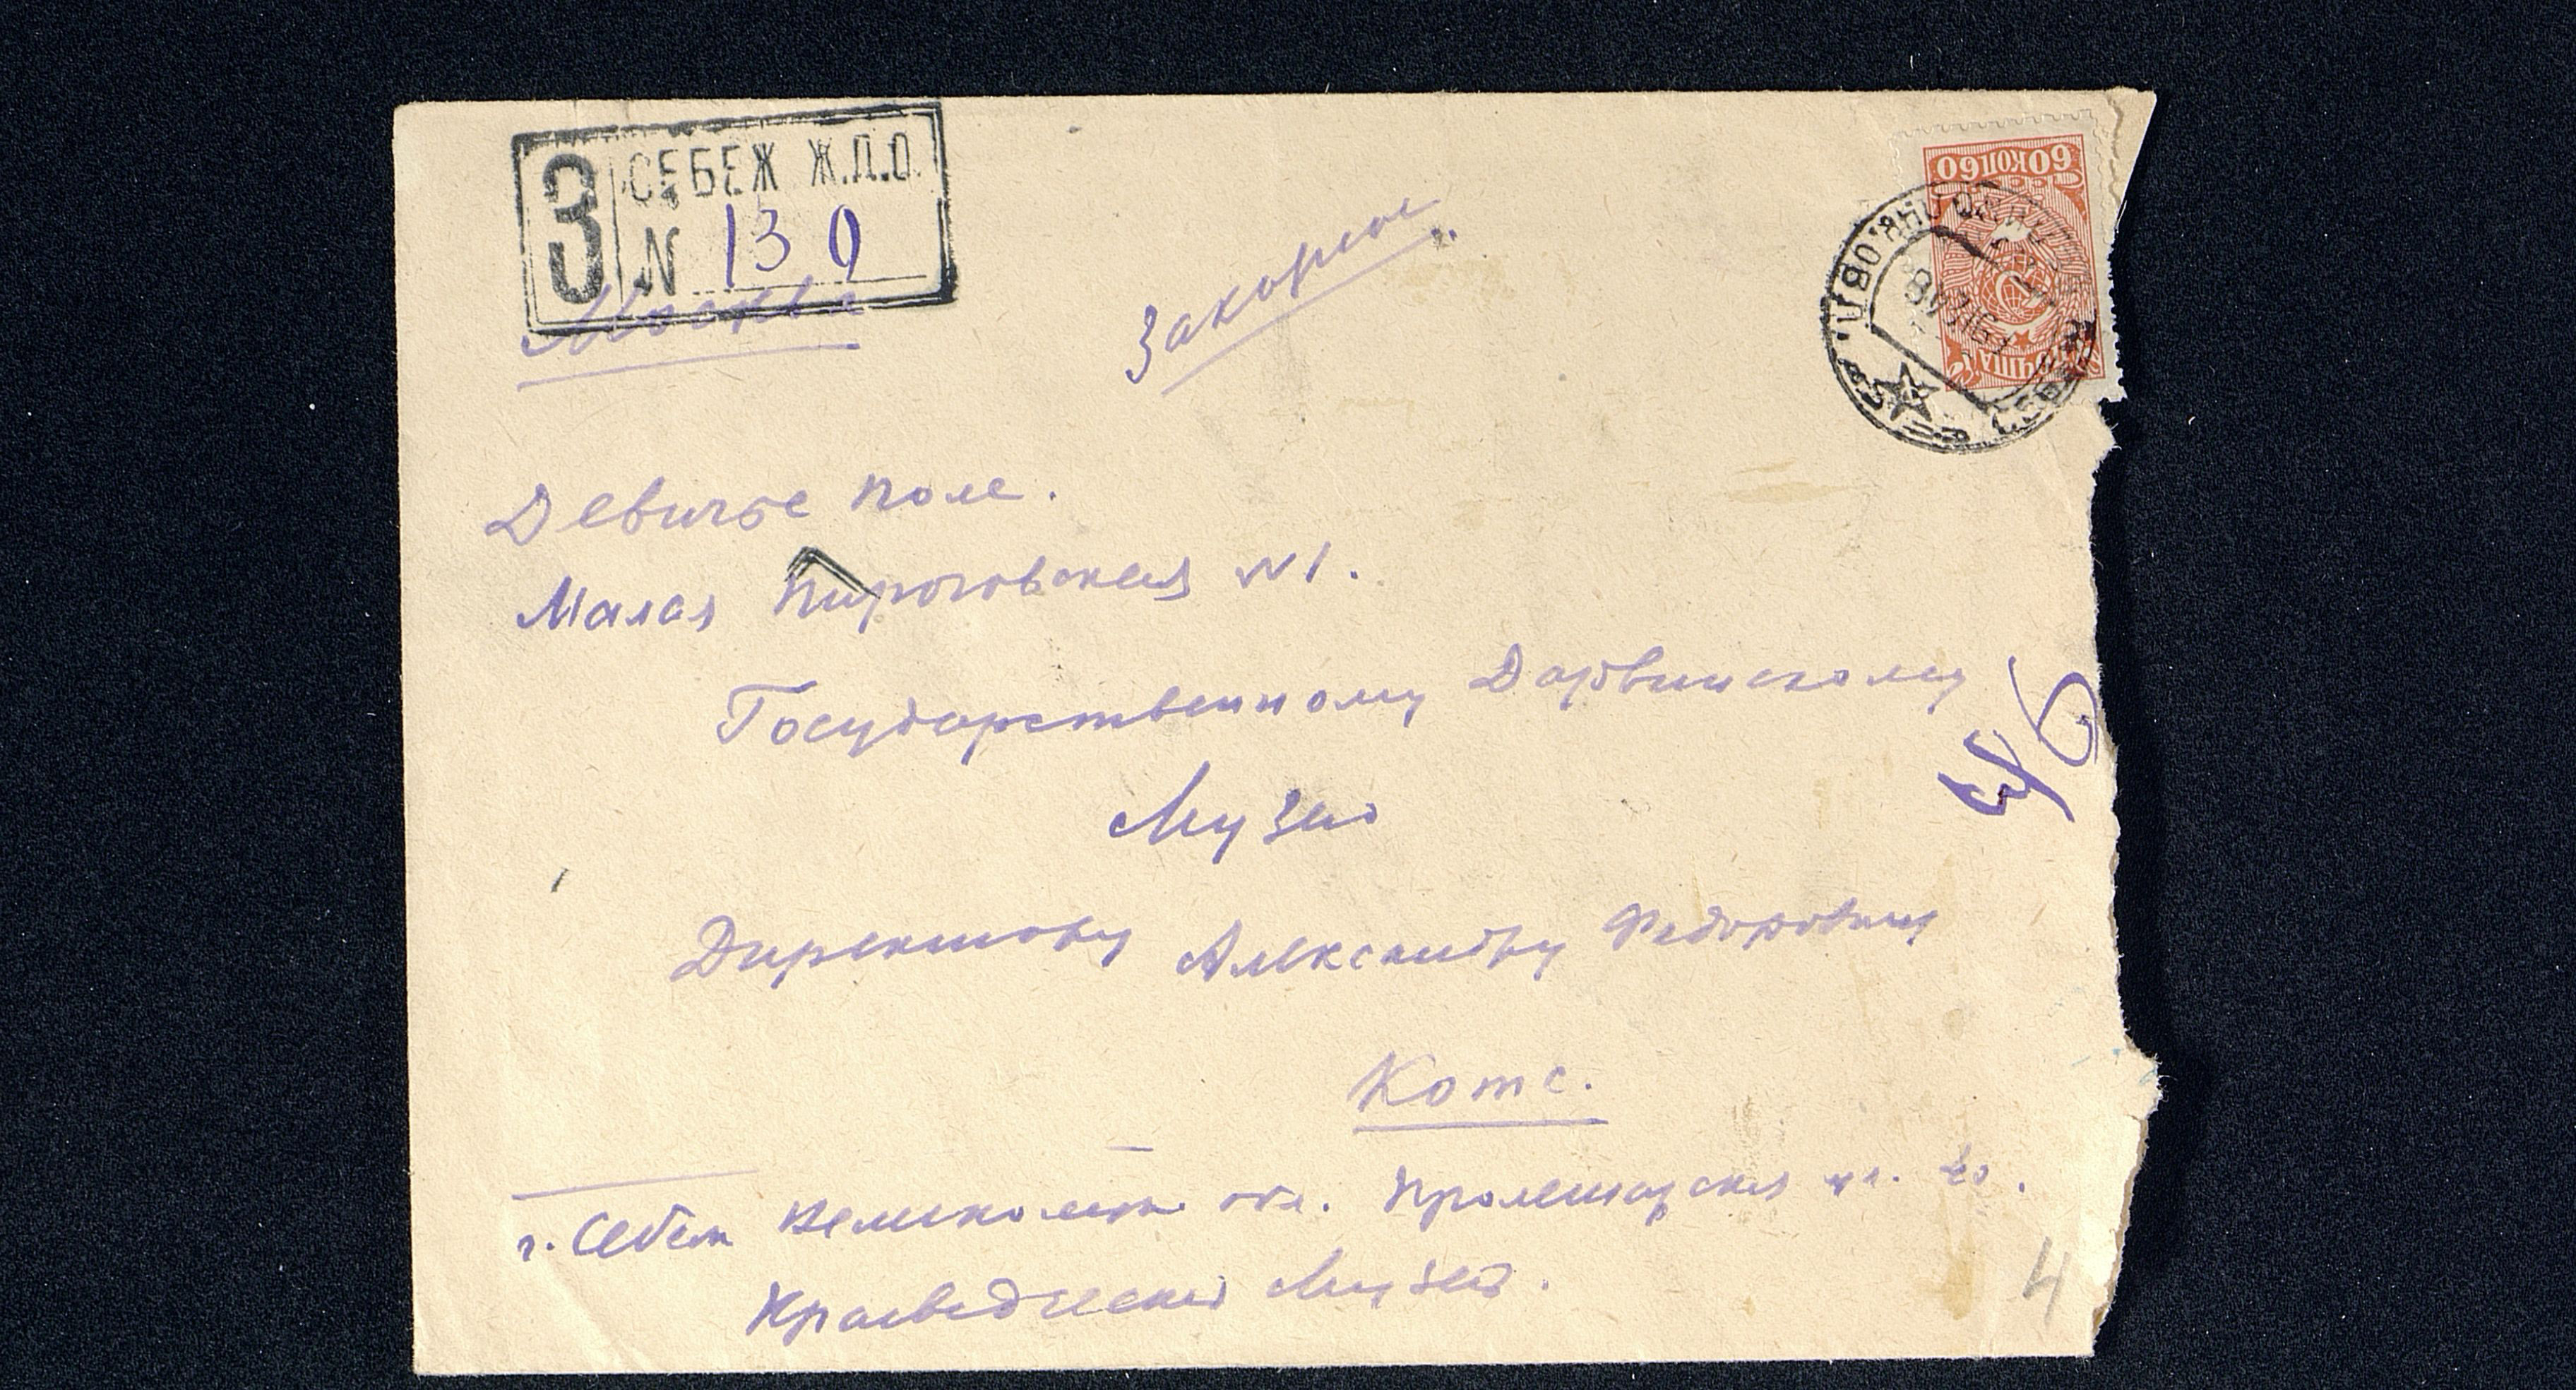 З СЕБЕЖ Ж.Д.О.
N 130
Москва
Заказное
60 КОП 60
ПОЧТА
Девичье поле.
Малая Пироговская N 1.
Государственному Дарвинскому
Музею
46
Директору Александру Федоровичу
Котс.
г. Себеж Великолукск. обл. Пролетарская ул. 20.
Краеведческий Музей.
4